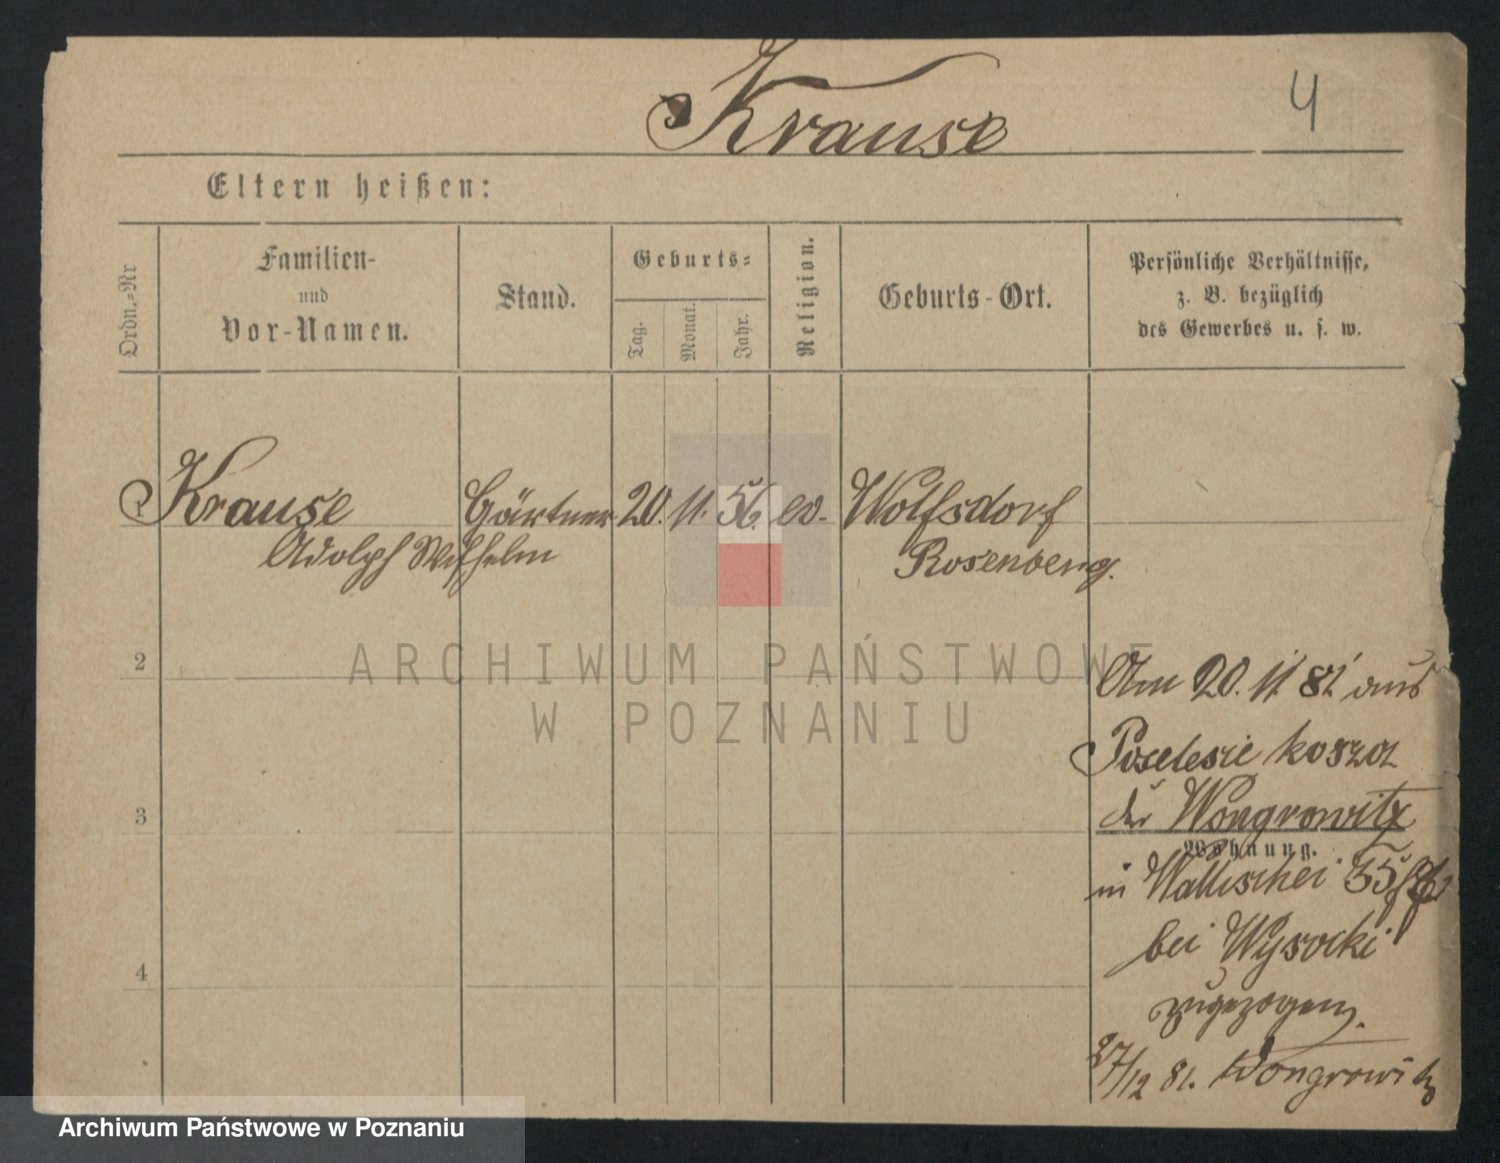 Krause
4
Eltern heißen:
Ordn.-Nr
Familien-
und
Vor-Namen.
Stand.
Geburts-
Tag.
Monat.
Jahr.
Religion.
Geburts-Ort.
Persönliche Verhältnisse,
z. B. bezüglich
des Gewerbes u. s. w.
1 Krause Gärtner 20. 11. 56. ev. Wolfsdorf
Adolph Wilhelm Rosenberg.
ARCHIWUM PAŃSTWOWE
W POZNANIU
2
Am 20. 11 81 aus
3
Wongrowitz
Wohnung.
in Wallischei 55
bei Wysocki
4
zugezogen.
27/12 81. Wongrowitz
Archiwum Państwowe w Poznaniu